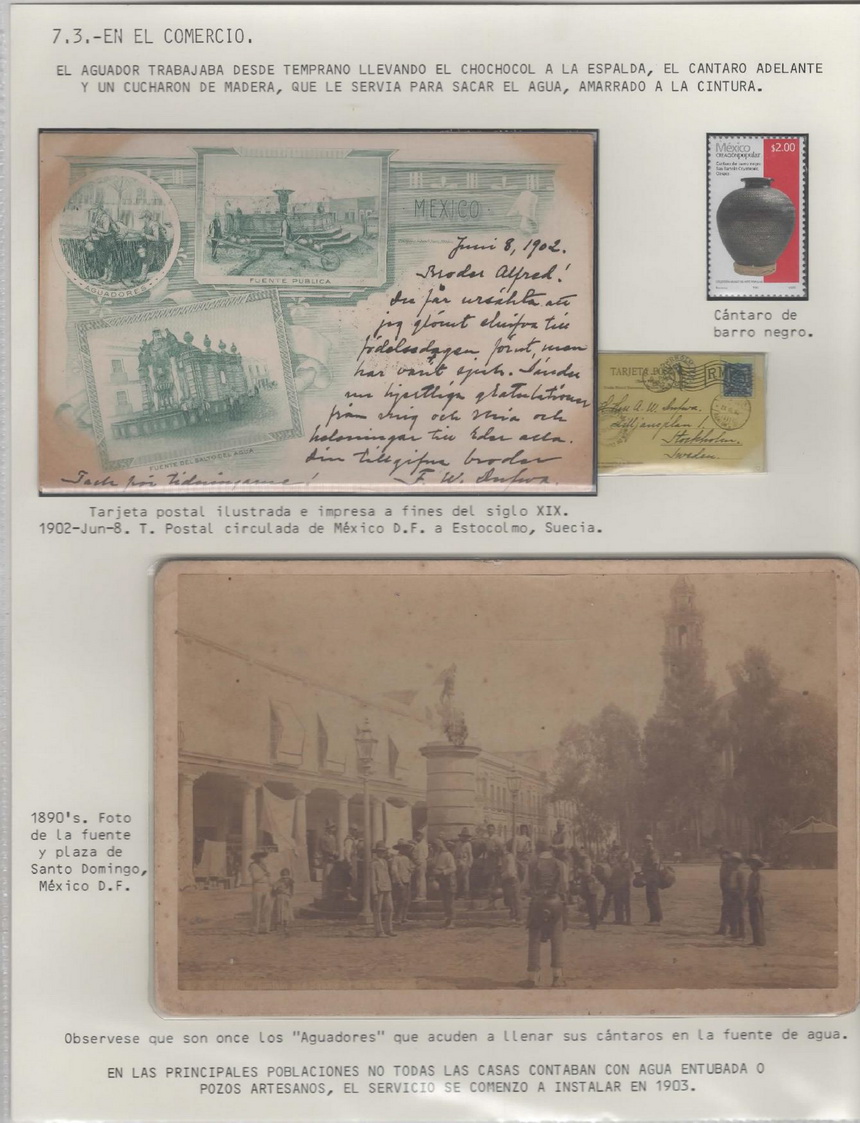 7.3.-EN EL COMERCIO.
EL AGUADOR TRABAJABA DESDE TEMPRANO LLEVANDO EL CHOCHOCOL A LA ESPALDA, EL CANTARO ADELANTE
Y UN CUCHARON DE MADERA, QUE LE SERVIA PARA SACAR EL AGUA, AMARRADO A LA CINTURA.
AGUADORES
FUENTE PUBLICA
MEXICO
FUENTE DEL SALTO EL AGUA
Juni 8, 1902.
Broder Alfred!
Du får ursäkta att
jag glömt skrifva till
födelsedagen förut men
har varit
gratulationer
från mig och och
helsningar till Eder alla.
din tillgifne broder
F. W.
Tack för tidningarne!
México
creaciónpopular
$2.00
Cántaro de
barro negro.
TARJETA
A. W.
Stockholm.
Sweden.
Tarjeta postal ilustrada e impresa a fines del siglo XIX.
1902-Jun-8. T. Postal circulada de México D.F. a Estocolmo, Suecia.
1890's. Foto
de la fuente
y plaza de
Santo Domingo,
México D.F.
Observese que son once los "Aguadores" que acuden a llenar sus cántaros en la fuente de agua.
EN LAS PRINCIPALES POBLACIONES NO TODAS LAS CASAS CONTABAN CON AGUA ENTUBADA O
POZOS ARTESANOS, EL SERVICIO SE COMENZO A INSTALAR EN 1903.